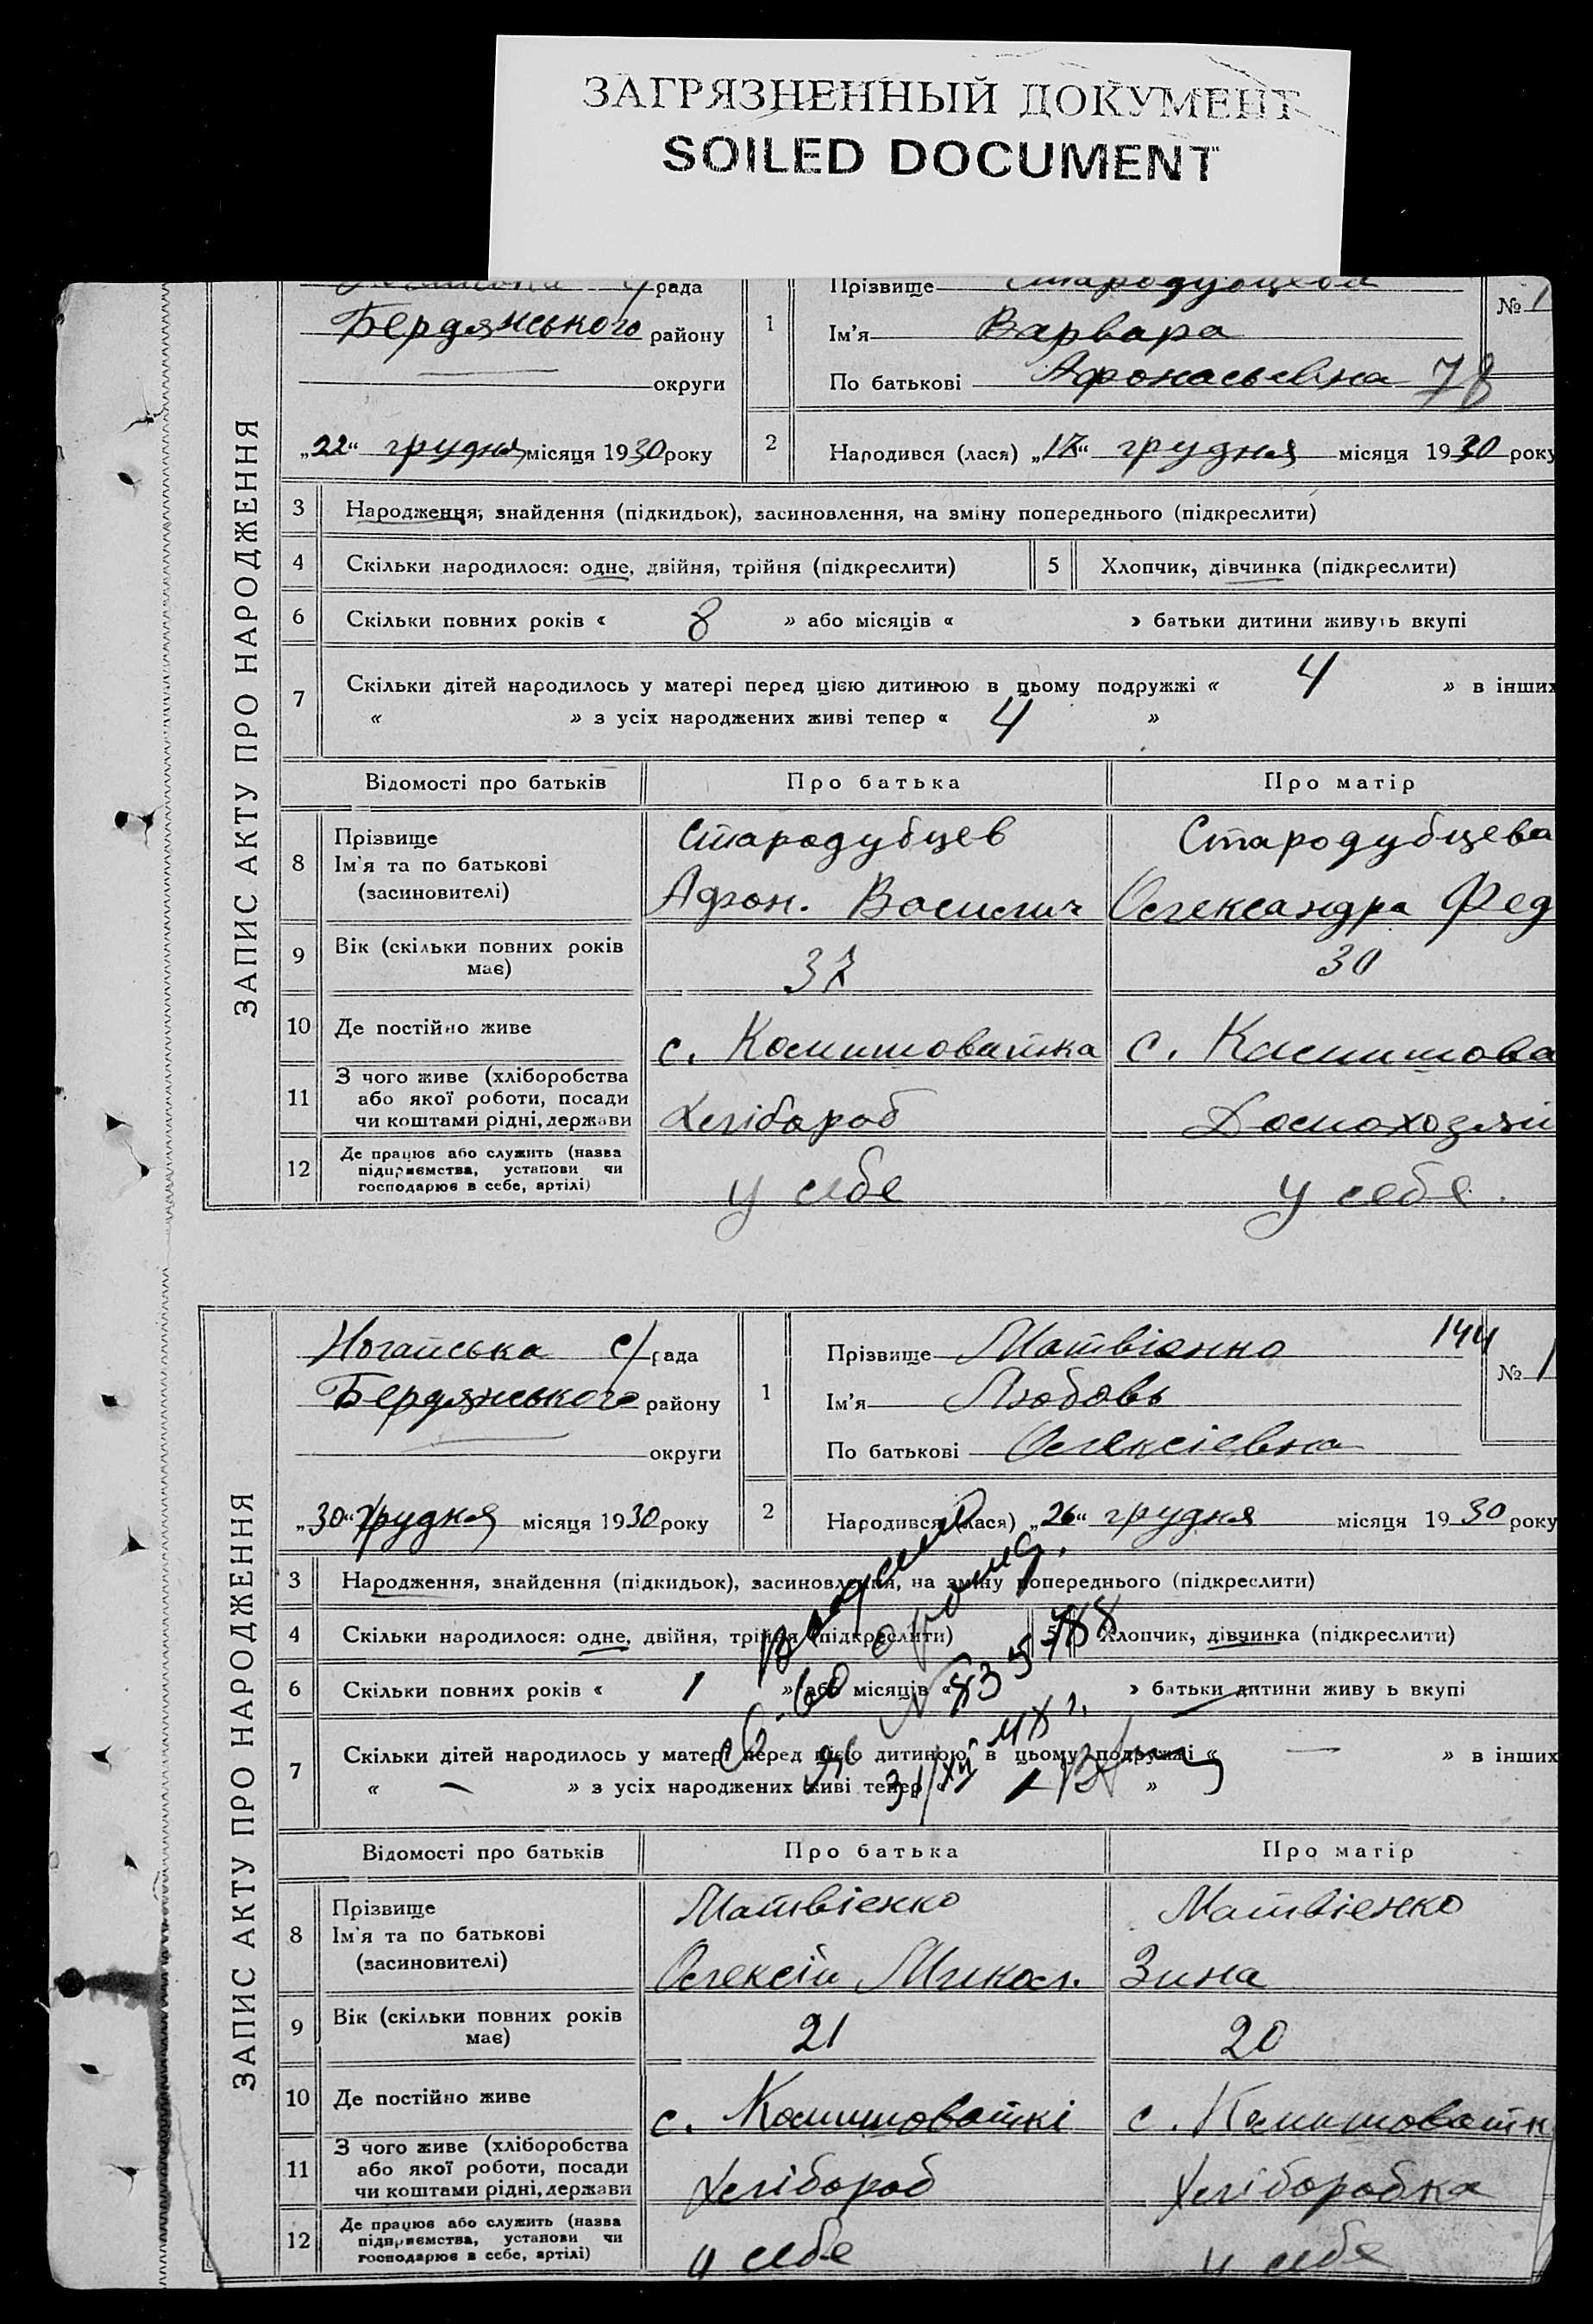 ЗАГРЯЗНЕННЫЙ ДОКУМЕНТ
SOILED DOCUMENT
ЗАПИС АКТУ ПРО НАРОДЖЕННЯ
с/рада
Бердянського району
округи
„22“ грудня місяця 1930 року
1 Прізвище Стародубцева
Ім'я Варвара
По батькові Афонасьевна 78
№ 1
2 Народився (лася) „17“ грудня місяця 1930 року
3 Народження, знайдення (підкидьок), засиновлення, на зміну попереднього (підкреслити)
4 Скільки народилося: одне, двійня, трійня (підкреслити) 5 Хлопчик, дівчинка (підкреслити)
6 Скільки повних років « 8 » або місяців « » батьки дитини живуть вкупі
7 Скільки дітей народилось у матері перед цією дитиною в цьому подружжі « 4 » в інших
« » з усіх народжених живі тепер « 4 »
Відомості про батьків Про батька Про матір
8 Прізвище Стародубцев Стародубцева
Ім'я та по батькові
(засиновителі) Афон. Василич Олександра Фед
9 Вік (скільки повних років має) 37 30
10 Де постійно живе с. Камишоватка с. Камишова
11 З чого живе (хліборобства
або якої роботи, посади
чи коштами рідні, держави Хлібороб Домохозяй
12 Де працює або служить (назва
підприємства, установи чи
господарює в себе, артілі) у себе у себе.
ЗАПИС АКТУ ПРО НАРОДЖЕННЯ
Ногайська с/рада
Бердянського району
округи
„30“ грудня місяця 1930 року
1 Прізвище Матвієнко 144
Ім'я Любовь
По батькові Олексієвна
№ 1
2 Народився (лася) „26“ грудня місяця 1930 року
3 Народження, знайдення (підкидьок), засиновлення, на зміну попереднього (підкреслити)
4 Скільки народилося: одне, двійня, трійня (підкреслити) 5 Хлопчик, дівчинка (підкреслити)
6 Скільки повних років « 1 » або місяців « » батьки дитини живуть вкупі
7 Скільки дітей народилось у матері перед цією дитиною в цьому подружжі « — » в інших
« — » з усіх народжених живі тепер « 1 »
Відомості про батьків Про батька Про матір
8 Прізвище Матвієнко Матвієнко
Ім'я та по батькові
(засиновителі) Олексій Микол. Зина
9 Вік (скільки повних років має) 21 20
10 Де постійно живе с. Камишоваткі с. Камишоватк
11 З чого живе (хліборобства
або якої роботи, посади
чи коштами рідні, держави Хлібороб Хліборобка
12 Де працює або служить (назва
підприємства, установи чи
господарює в себе, артілі) у себе у себе